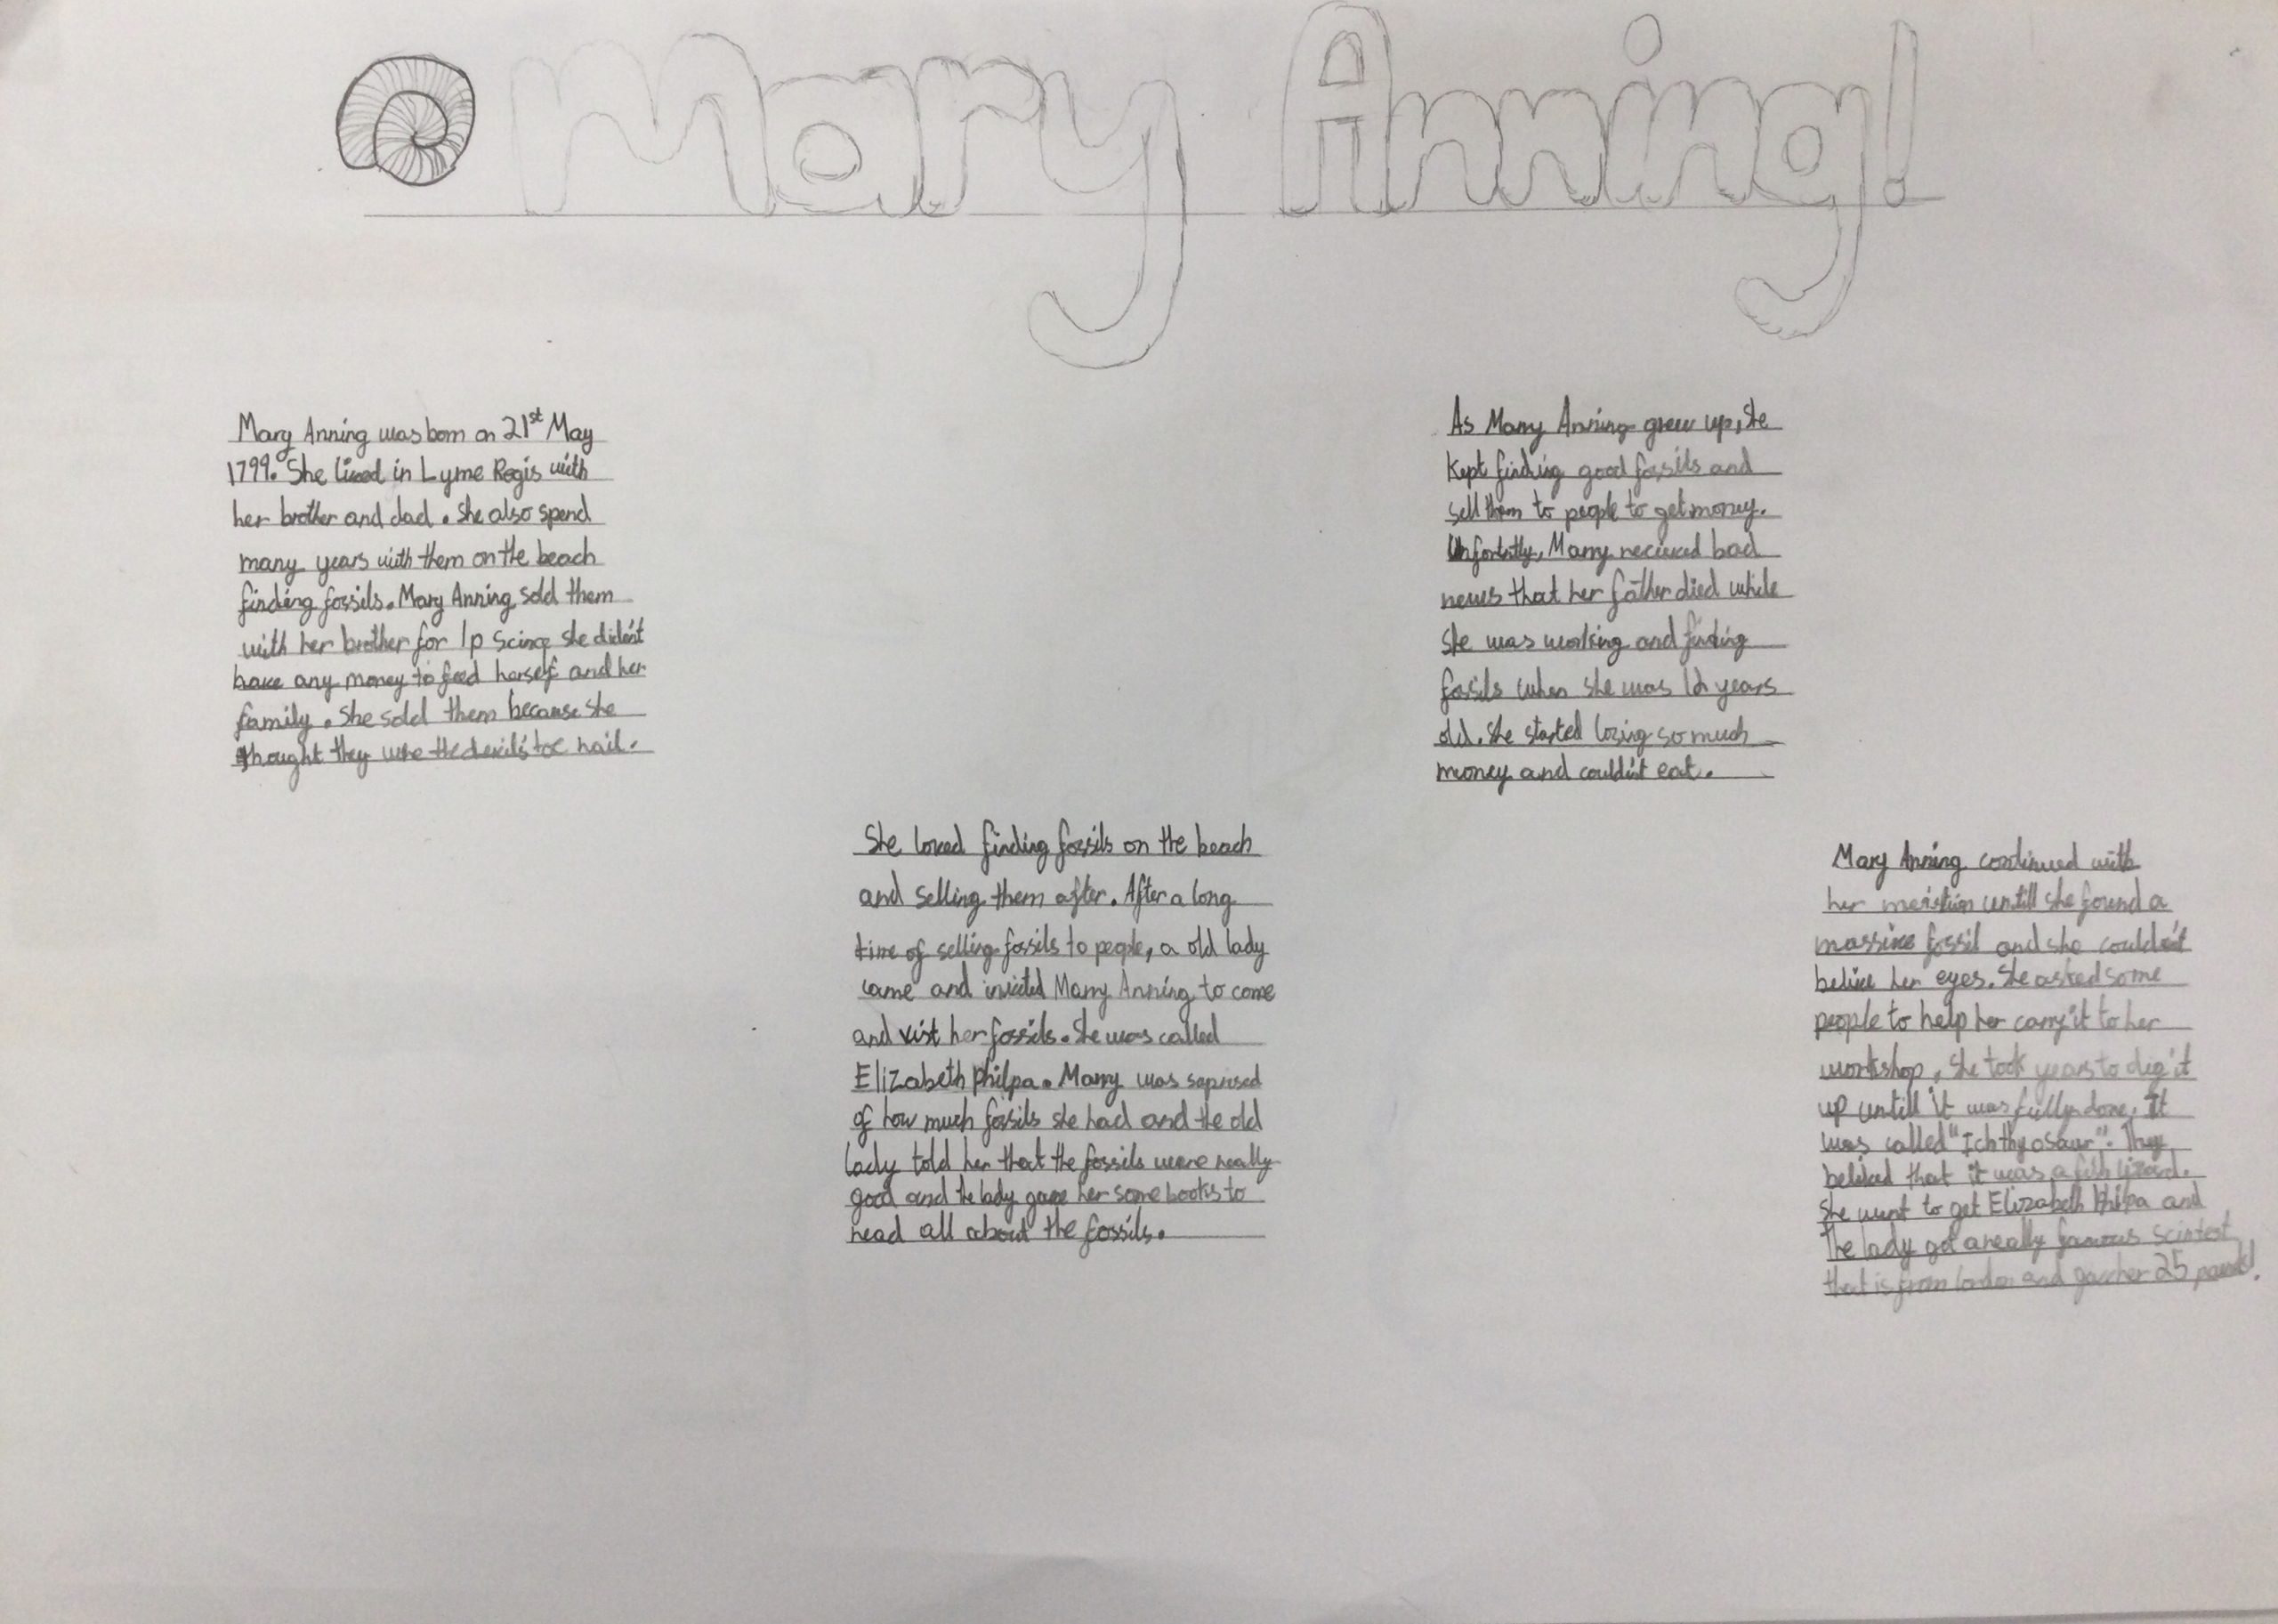 Mary Anning!
Mary Anning was born on 21st May
1799. She lived in Lyme Regis with
her brother and dad. She also spend
many years with them on the beach
finding fossils. Mary Anning sold them
with her brother for 1p scince she diden't
have any money to feed herself and her
family. She sold them because she
thought they were the devil's toe nail.
She loved finding fossils on the beach
and selling them after. After a long
time of selling fossils to people, a old lady
came and invited Marry Anning to come
and visit her fossils. She was called
Elizabeth Philpa. Marry was saprised
of how much fossils she had and the old
lady told her that the fossils were really
good and the lady gave her some books to
read all about the fossils.
As Marry Anning grew up, she
kept finding good fossils and
sell them to people to get money.
Marry recieved bad
news that her father died while
she was working and finding
fossils when she was 12 years
old. She started losing so much
money and couldn't eat.
Mary Anning continued with
her untill she found a
massive fossil and she couldn't
belive her eyes. She asked some
people to help her carry it to her
workshop. She took years to dig it
up untill it was fully done. It
was called "Ichthyosaur". They
belived that it was a fish lizard.
She went to get Elizabeth Philpa and
The lady got a really famous scintest
that is from london and gave her 25